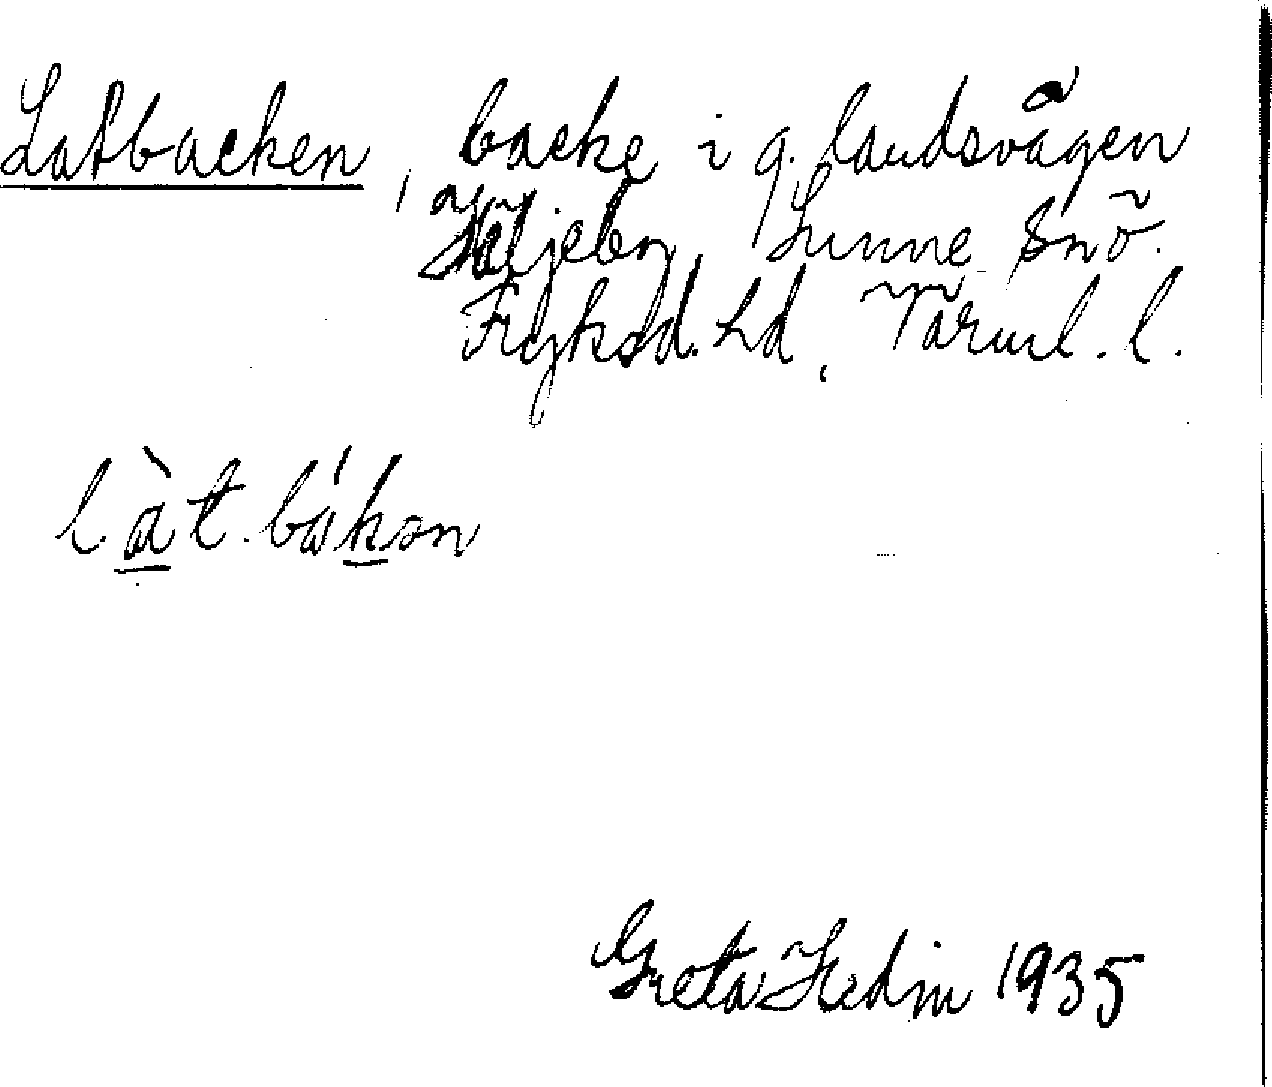 Latbacken, backe i g. landsvägen
Häljeby, Sunne sn ö.
Fryksd. hd, Värml. l.
l. àt. bákən
Greta Hedin 1935